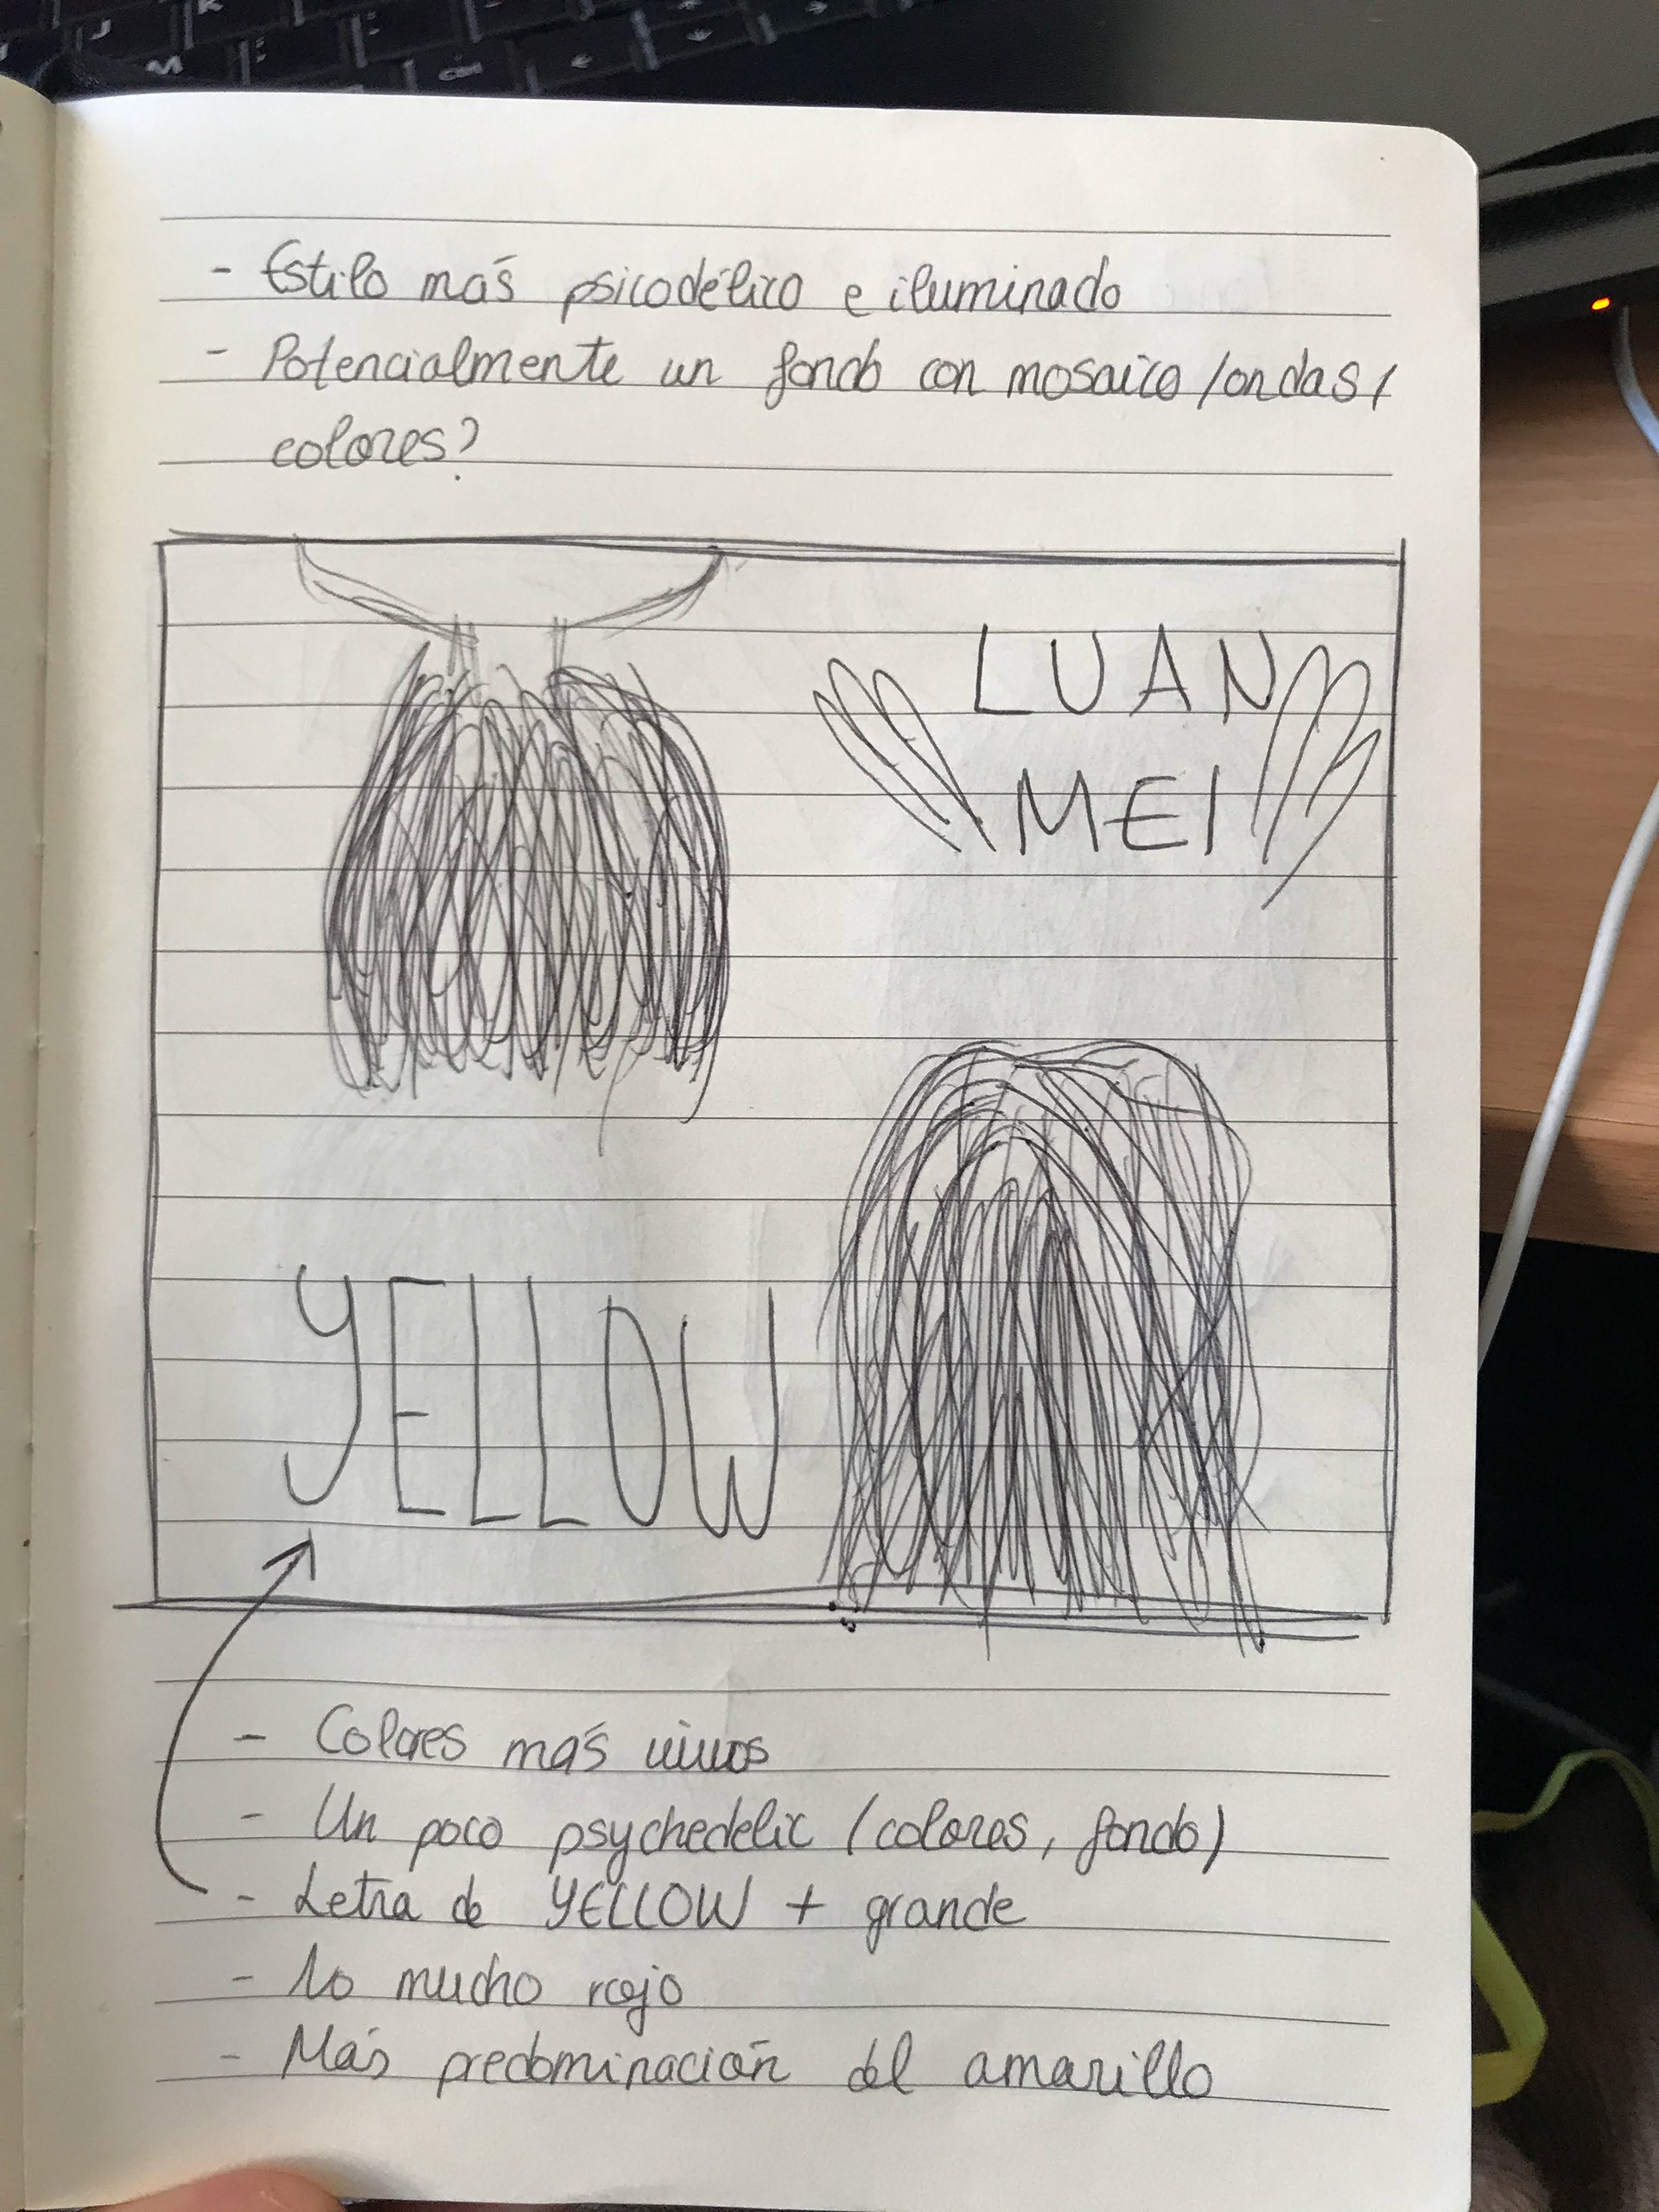 - Estilo más psicodélico e iluminado
- Potencialmente un fondo con mosaico/ondas/
colores?
LUAN
MEI
YELLOW
- Colores más vivos
- Un poco psychedelic (colores, fondo)
- Letra de YELLOW + grande
- No mucho rojo
- Más predominación del amarillo